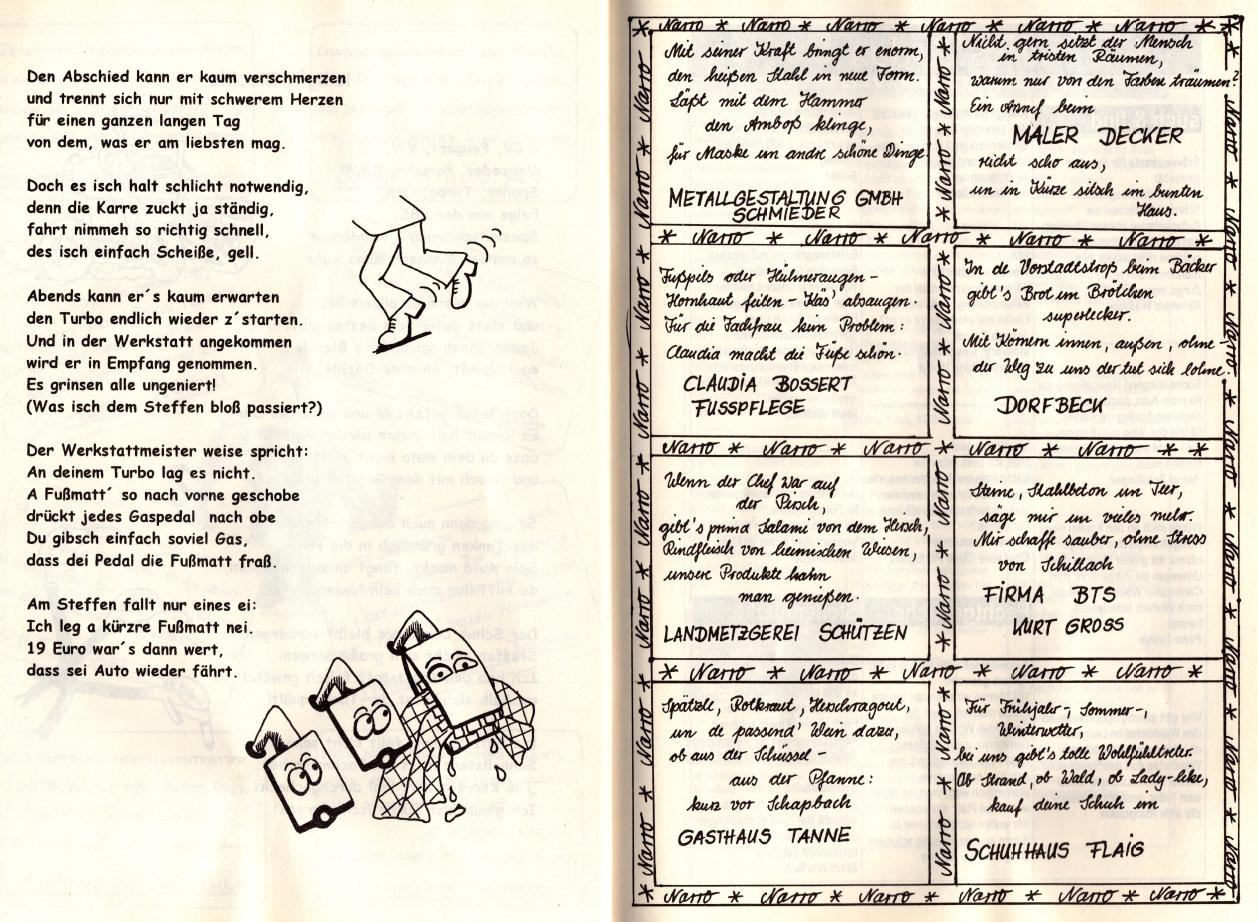 Den Abschied kann er kaum verschmerzen
und trennt sich nur mit schwerem Herzen
für einen ganzen langen Tag
von dem, was er am liebsten mag.
Doch es isch halt schlicht notwendig,
denn die Karre zuckt ja ständig,
fahrt nimmeh so richtig schnell,
des isch einfach Scheiße, gell.
Abends kann er´s kaum erwarten
den Turbo endlich wieder z´starten.
Und in der Werkstatt angekommen
wird er in Empfang genommen.
Es grinsen alle ungeniert!
(Was isch dem Steffen bloß passiert?)
Der Werkstattmeister weise spricht:
An deinem Turbo lag es nicht.
A Fußmatt´ so nach vorne geschobe
drückt jedes Gaspedal nach obe
Du gibsch einfach soviel Gas,
dass dei Pedal die Fußmatt fraß.
Am Steffen fallt nur eines ei:
Ich leg a kürzre Fußmatt nei.
19 Euro war´s dann wert,
dass sei Auto wieder fährt.
* Narro * Narro * Narro * Narro * Narro * Narro **
Mit seiner Kraft bringt er enorm,
den heißen Stahl in neue Form.
Läßt mit dem Hammer
den Amboß klinge,
für Maske un andre schöne Dinge!
METALLGESTALTUNG GMBH
SCHMIEDER
Nicht gern sitzt der Mensch
in tristen Räumen,
warum nur von den Farben träumen?
Ein Anruf beim
MALER DECKER
reicht scho aus,
un in Kürze sitsch im bunten
Haus.
* Narro * Narro * Narro * Narro * Narro *
Fußpils oder Hühneraugen -
Hornhaut feilen - Käs' absaugen.
Für die Fachfrau kein Problem:
Claudia macht die Füße schön.
CLAUDIA BOSSERT
FUSSPFLEGE
In de Vorstadtstroß beim Bäcker
gibt's Brot un Brötchen
superlecker.
Mit Körnern innen, außen, ohne -
der Weg zu uns der tut sich lohne.
DORFBECK
Narro * Narro * Narro * Narro * Narro * *
Wenn der Chef war auf
der Pirsch,
gibt's prima Salami von dem Hirsch,
Rindfleisch von heimischen Wiesen,
unsere Produkte kahn
man genießen.
LANDMETZGEREI SCHÜTZEN
Steine, Stahlbeton un Teer,
säge mir un vieles mehr.
Mir schaffe sauber, ohne Stress
von Schillach
FIRMA BTS
KURT GROSS
* Narro * Narro * Narro * Narro * Narro *
Spätzle, Rotkraut, Hirschragout,
un de passend' Wein dazu,
ob aus der Schüssel -
aus der Pfanne:
kurz vor Schapbach
GASTHAUS TANNE
Für Frühjahr-, Sommer-,
Winterwetter,
bei uns gibt's tolle Wohlfühltreter
Ob Strand, ob Wald, ob Lady-like,
kauf deine Schuh im
SCHUHHAUS FLAIG
* Narro * Narro * Narro * Narro * Narro * Narro *